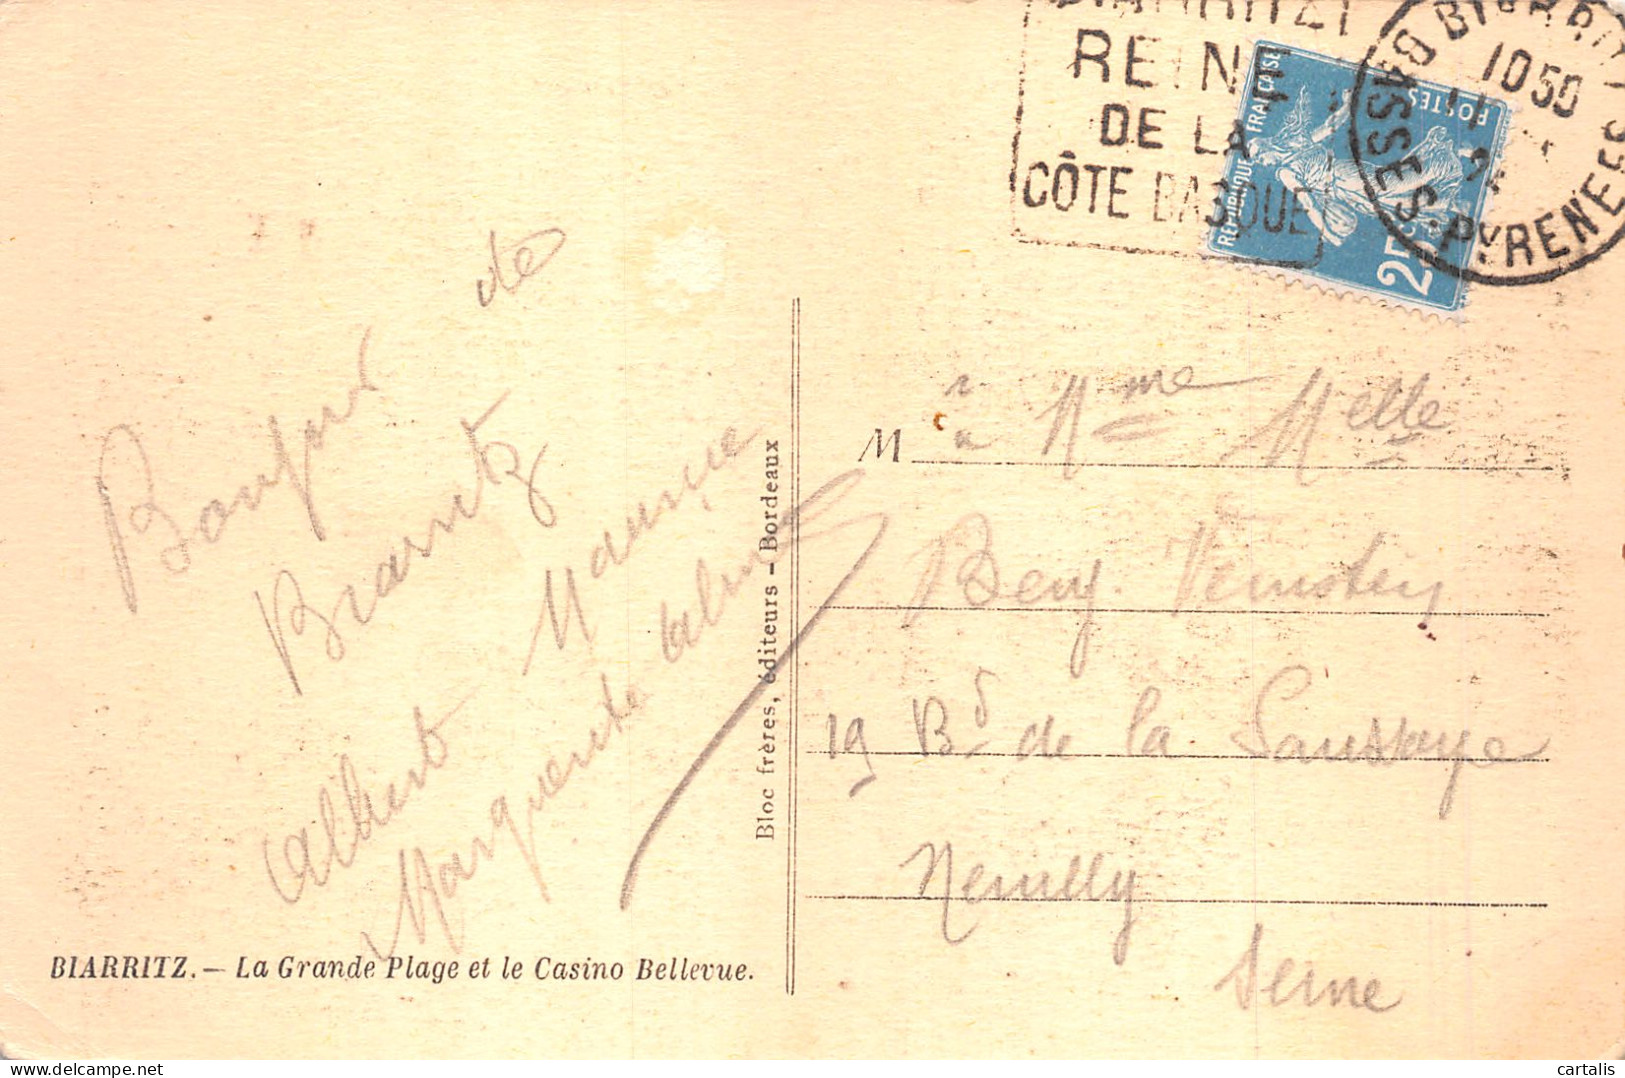 BIARRITZ
REINE
DE LA
CÔTE BASQUE
BIARRITZ
10 50
BASSES-PYRENEES
REPUBLIQUE FRANÇAISE
POSTES
25
Bonjour de
Biarritz
Albert Maurice
Marguerite
Bloc frères, éditeurs - Bordeaux
M
à Mme Melle
Benj. Veinstein
19 Bd de la Saussaye
Neuilly
Seine
BIARRITZ. — La Grande Plage et le Casino Bellevue.
delcampe.net
cartalis